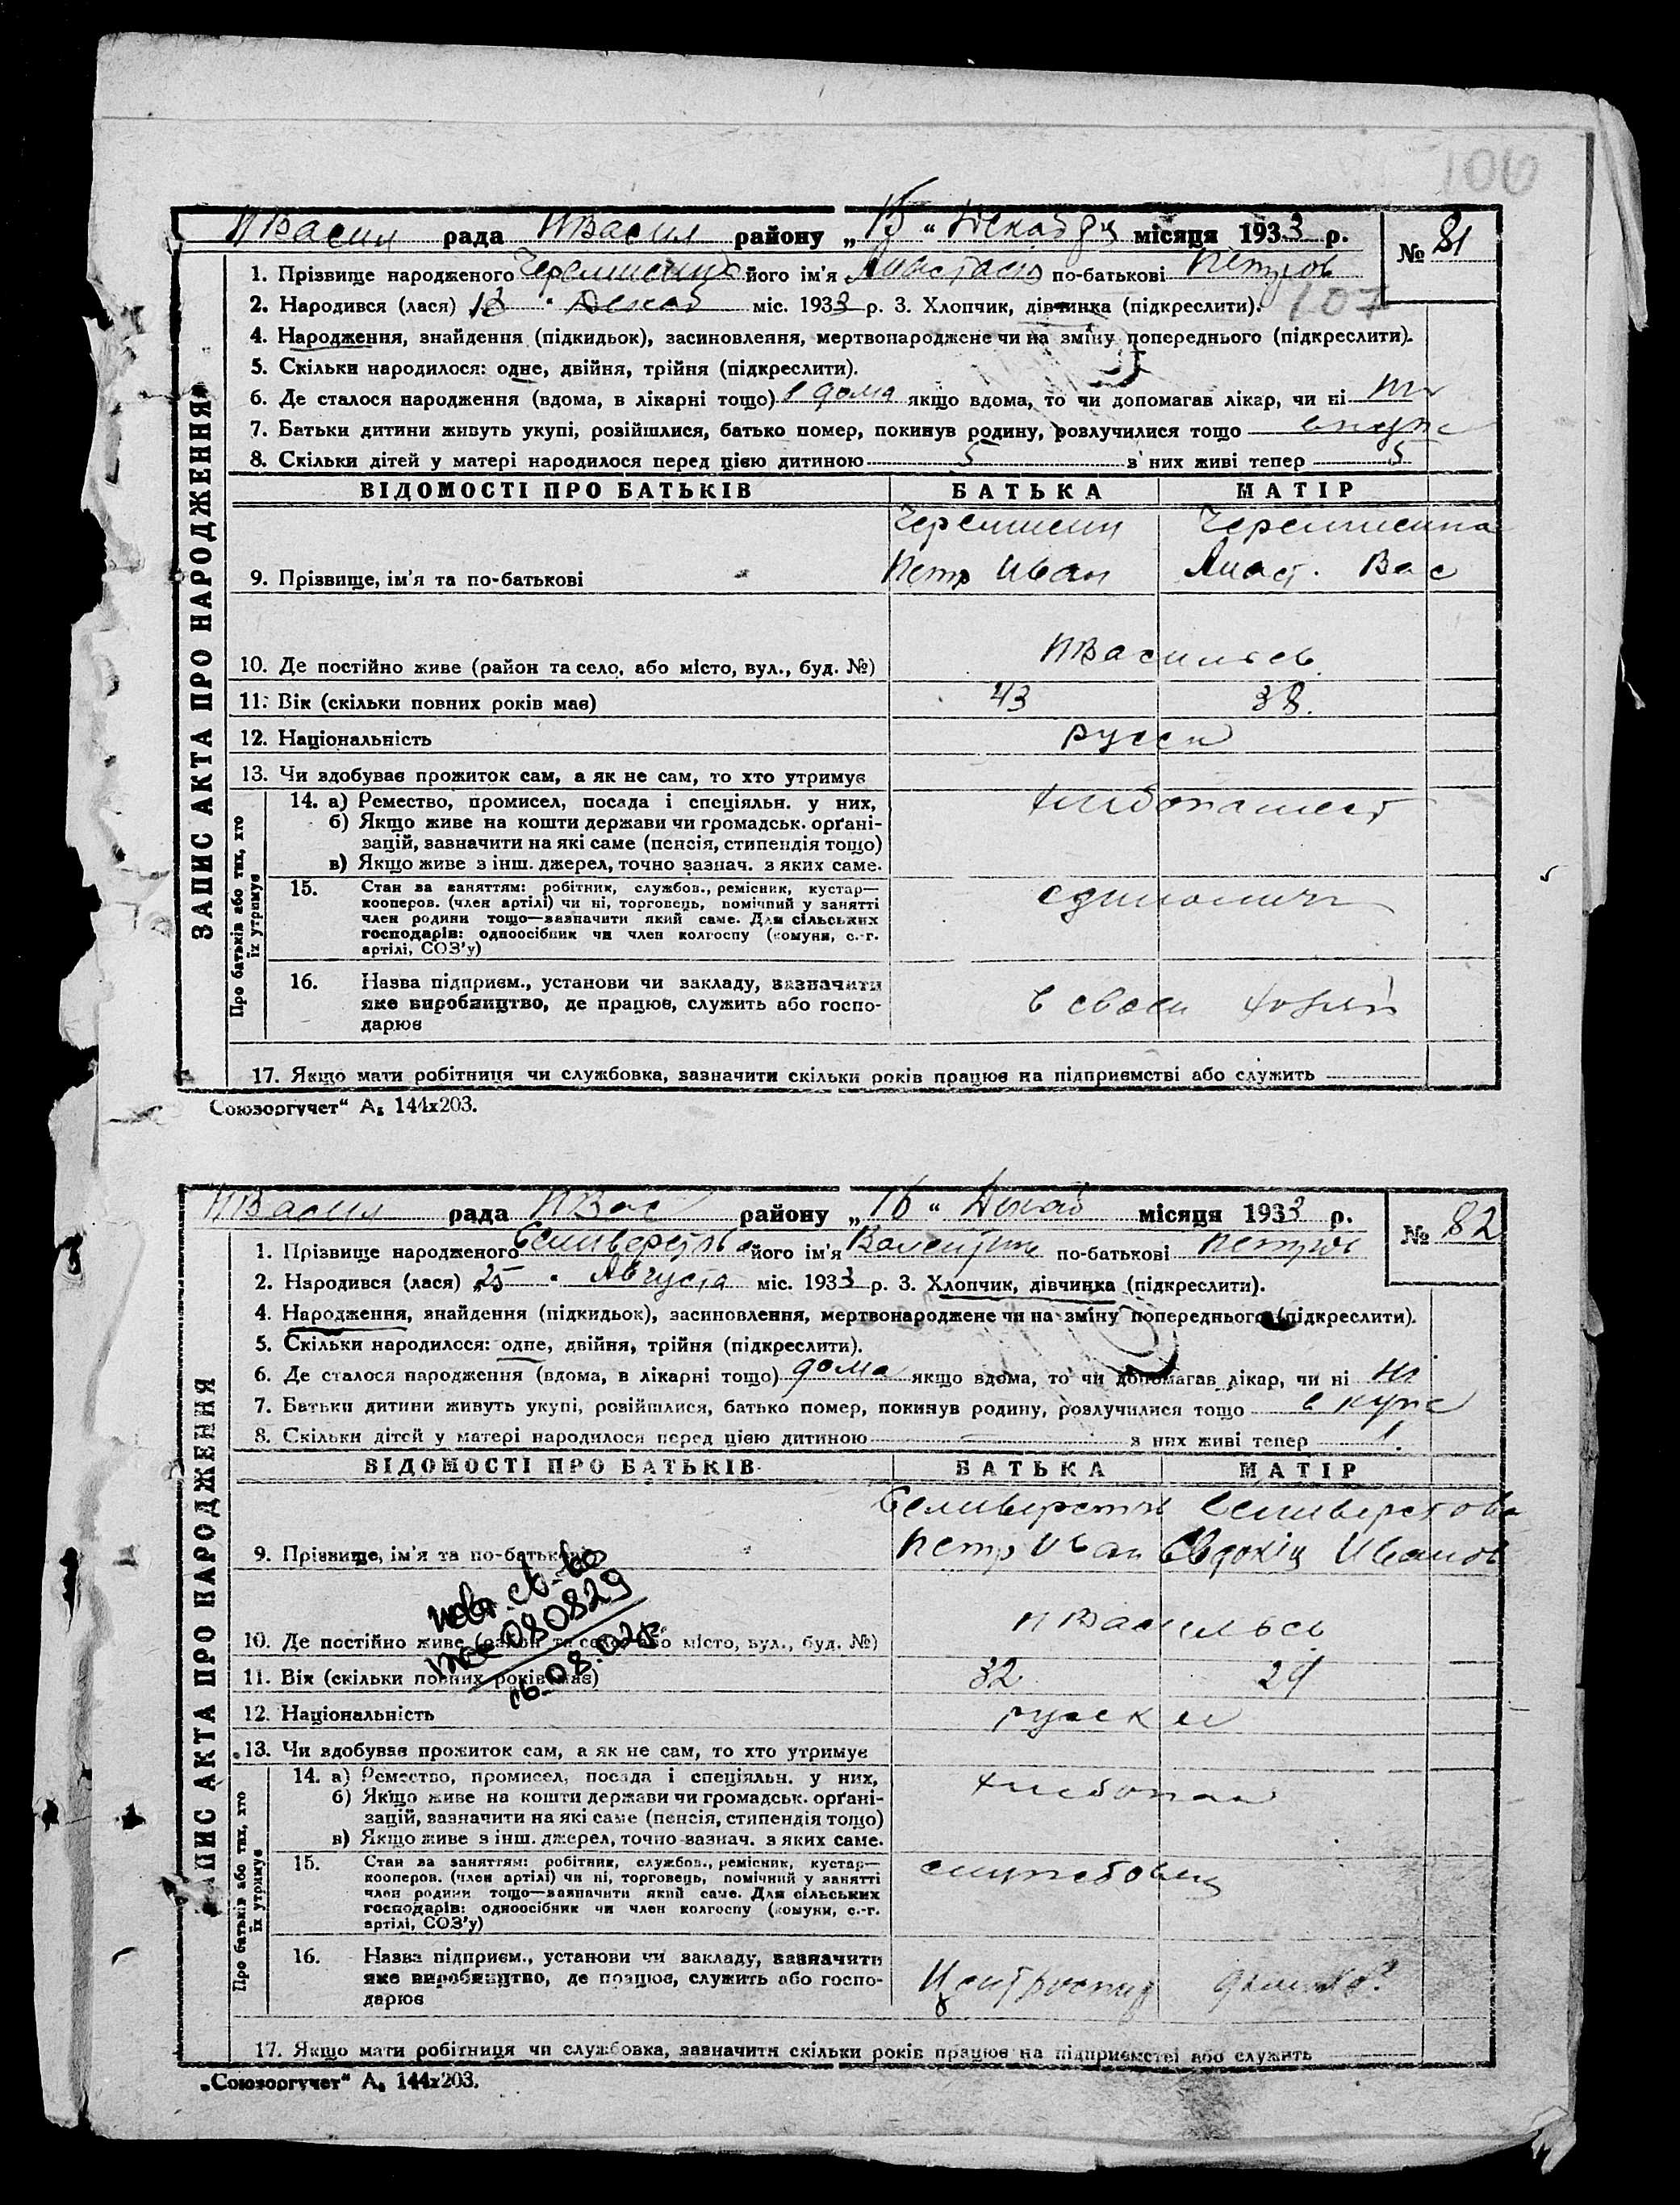 106
НВасил рада НВасил району „15“ Декабря місяця 1933 р. № 81
1. Прізвище народженого його ім'я Анастасія по-батькові Петров
107
2. Народився (лася) 13 " Декаб міс. 1933 р. 3. Хлопчик, дівчинка (підкреслити).
4. Народження, знайдення (підкидьок), засиновлення, мертвонароджене чи на зміну попереднього (підкреслити).
5. Скільки народилося: одне, двійня, трійня (підкреслити).
6. Де сталося народження (вдома, в лікарні тощо) в дома якщо вдома, то чи допомагав лікар, чи ні
7. Батьки дитини живуть укупі, розійшлися, батько помер, покинув родину, розлучилися тощо вкупе
8. Скільки дітей у матері народилося перед цією дитиною 5 з них живі тепер 5
ЗАПИС АКТА ПРО НАРОДЖЕННЯ
ВІДОМОСТІ ПРО БАТЬКІВ БАТЬКА МАТІР
Черемисин Черемисина
9. Прізвище, ім'я та по-батькові Петр Иван Анаст. Вас
10. Де постійно живе (район та село, або місто, вул., буд. №) НВасильев
11. Вік (скільки повних років має) 43 38.
12. Національність русск
13. Чи здобуває прожиток сам, а як не сам, то хто утримує
Про батьків або тих, хто їх утримує
14. а) Ремество, промисел, посада і спеціяльн. у них, хлебопашест
б) Якщо живе на кошти держави чи громадськ. орґані-
зацій, зазначити на які саме (пенсія, стипендія тощо)
в) Якщо живе з інш. джерел, точно зазнач. з яких саме.
15. Стан за заняттям: робітник, службов., ремісник, кустар—
кооперов. (член артілі) чи ні, торговець, помічний у занятті
член родини тощо—зазначити який саме. Для сільських
господарів: одноосібник чи член колгоспу (комуни, с.-г.
артілі, СОЗ'у)
единолич
16. Назва підприєм., установи чи закладу, зазначити
яке виробництво, де працює, служить або госпо-
дарює
в своем хозяй
17. Якщо мати робітниця чи службовка, зазначити скільки років працює на підприємстві або служить
Союзоргучет“ А₅ 144х203.
НВасил рада НВас району „16“ Декаб місяця 1933 р. № 82
1. Прізвище народженого Селиверство його ім'я Валентин по-батькові Петров
2. Народився (лася) 25 " Августа міс. 1933 р. 3. Хлопчик, дівчинка (підкреслити).
4. Народження, знайдення (підкидьок), засиновлення, мертвонароджене чи на зміну попереднього (підкреслити).
5. Скільки народилося: одне, двійня, трійня (підкреслити).
6. Де сталося народження (вдома, в лікарні тощо) дома якщо вдома, то чи допомагав лікар, чи ні
7. Батьки дитини живуть укупі, розійшлися, батько помер, покинув родину, розлучилися тощо вкупе
8. Скільки дітей у матері народилося перед цією дитиною — з них живі тепер 1.
ЗАПИС АКТА ПРО НАРОДЖЕННЯ
ВІДОМОСТІ ПРО БАТЬКІВ БАТЬКА МАТІР
Селиверстов Селиверстова
9. Прізвище, ім'я та по-батькові Петр Иван Євдокія Иванов
повт. св-во
080829
10. Де постійно живе (район та село, або місто, вул., буд. №) НВасильев
11. Вік (скільки повних років має) 32 29
12. Національність русские
13. Чи здобуває прожиток сам, а як не сам, то хто утримує
Про батьків або тих, хто їх утримує
14. а) Ремество, промисел, посада і спеціяльн. у них, хлебопаш
б) Якщо живе на кошти держави чи громадськ. орґані-
зацій, зазначити на які саме (пенсія, стипендія тощо)
в) Якщо живе з інш. джерел, точно зазнач. з яких саме.
15. Стан за заняттям: робітник, службов., ремісник, кустар—
кооперов. (член артілі) чи ні, торговець, помічний у занятті
член родини тощо—зазначити який саме. Для сільських
господарів: одноосібник чи член колгоспу (комуни, с.-г.
артілі, СОЗ'у)
службовец
16. Назва підприєм., установи чи закладу, зазначити
яке виробництво, де працює, служить або госпо-
дарює
17. Якщо мати робітниця чи службовка, зазначити скільки років працює на підприємстві або служить
„Союзоргучет“ А₅ 144х203.